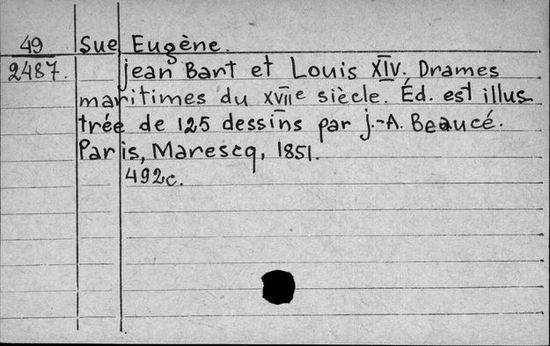 49 Sue Eugène.
2487. Jean Bart et Louis XIV. Drames
maritimes du XVIIe siècle. Éd. est illus
trée de 125 dessins par J.-A. Beaucé.
Paris, Marescq, 1851.
492c.